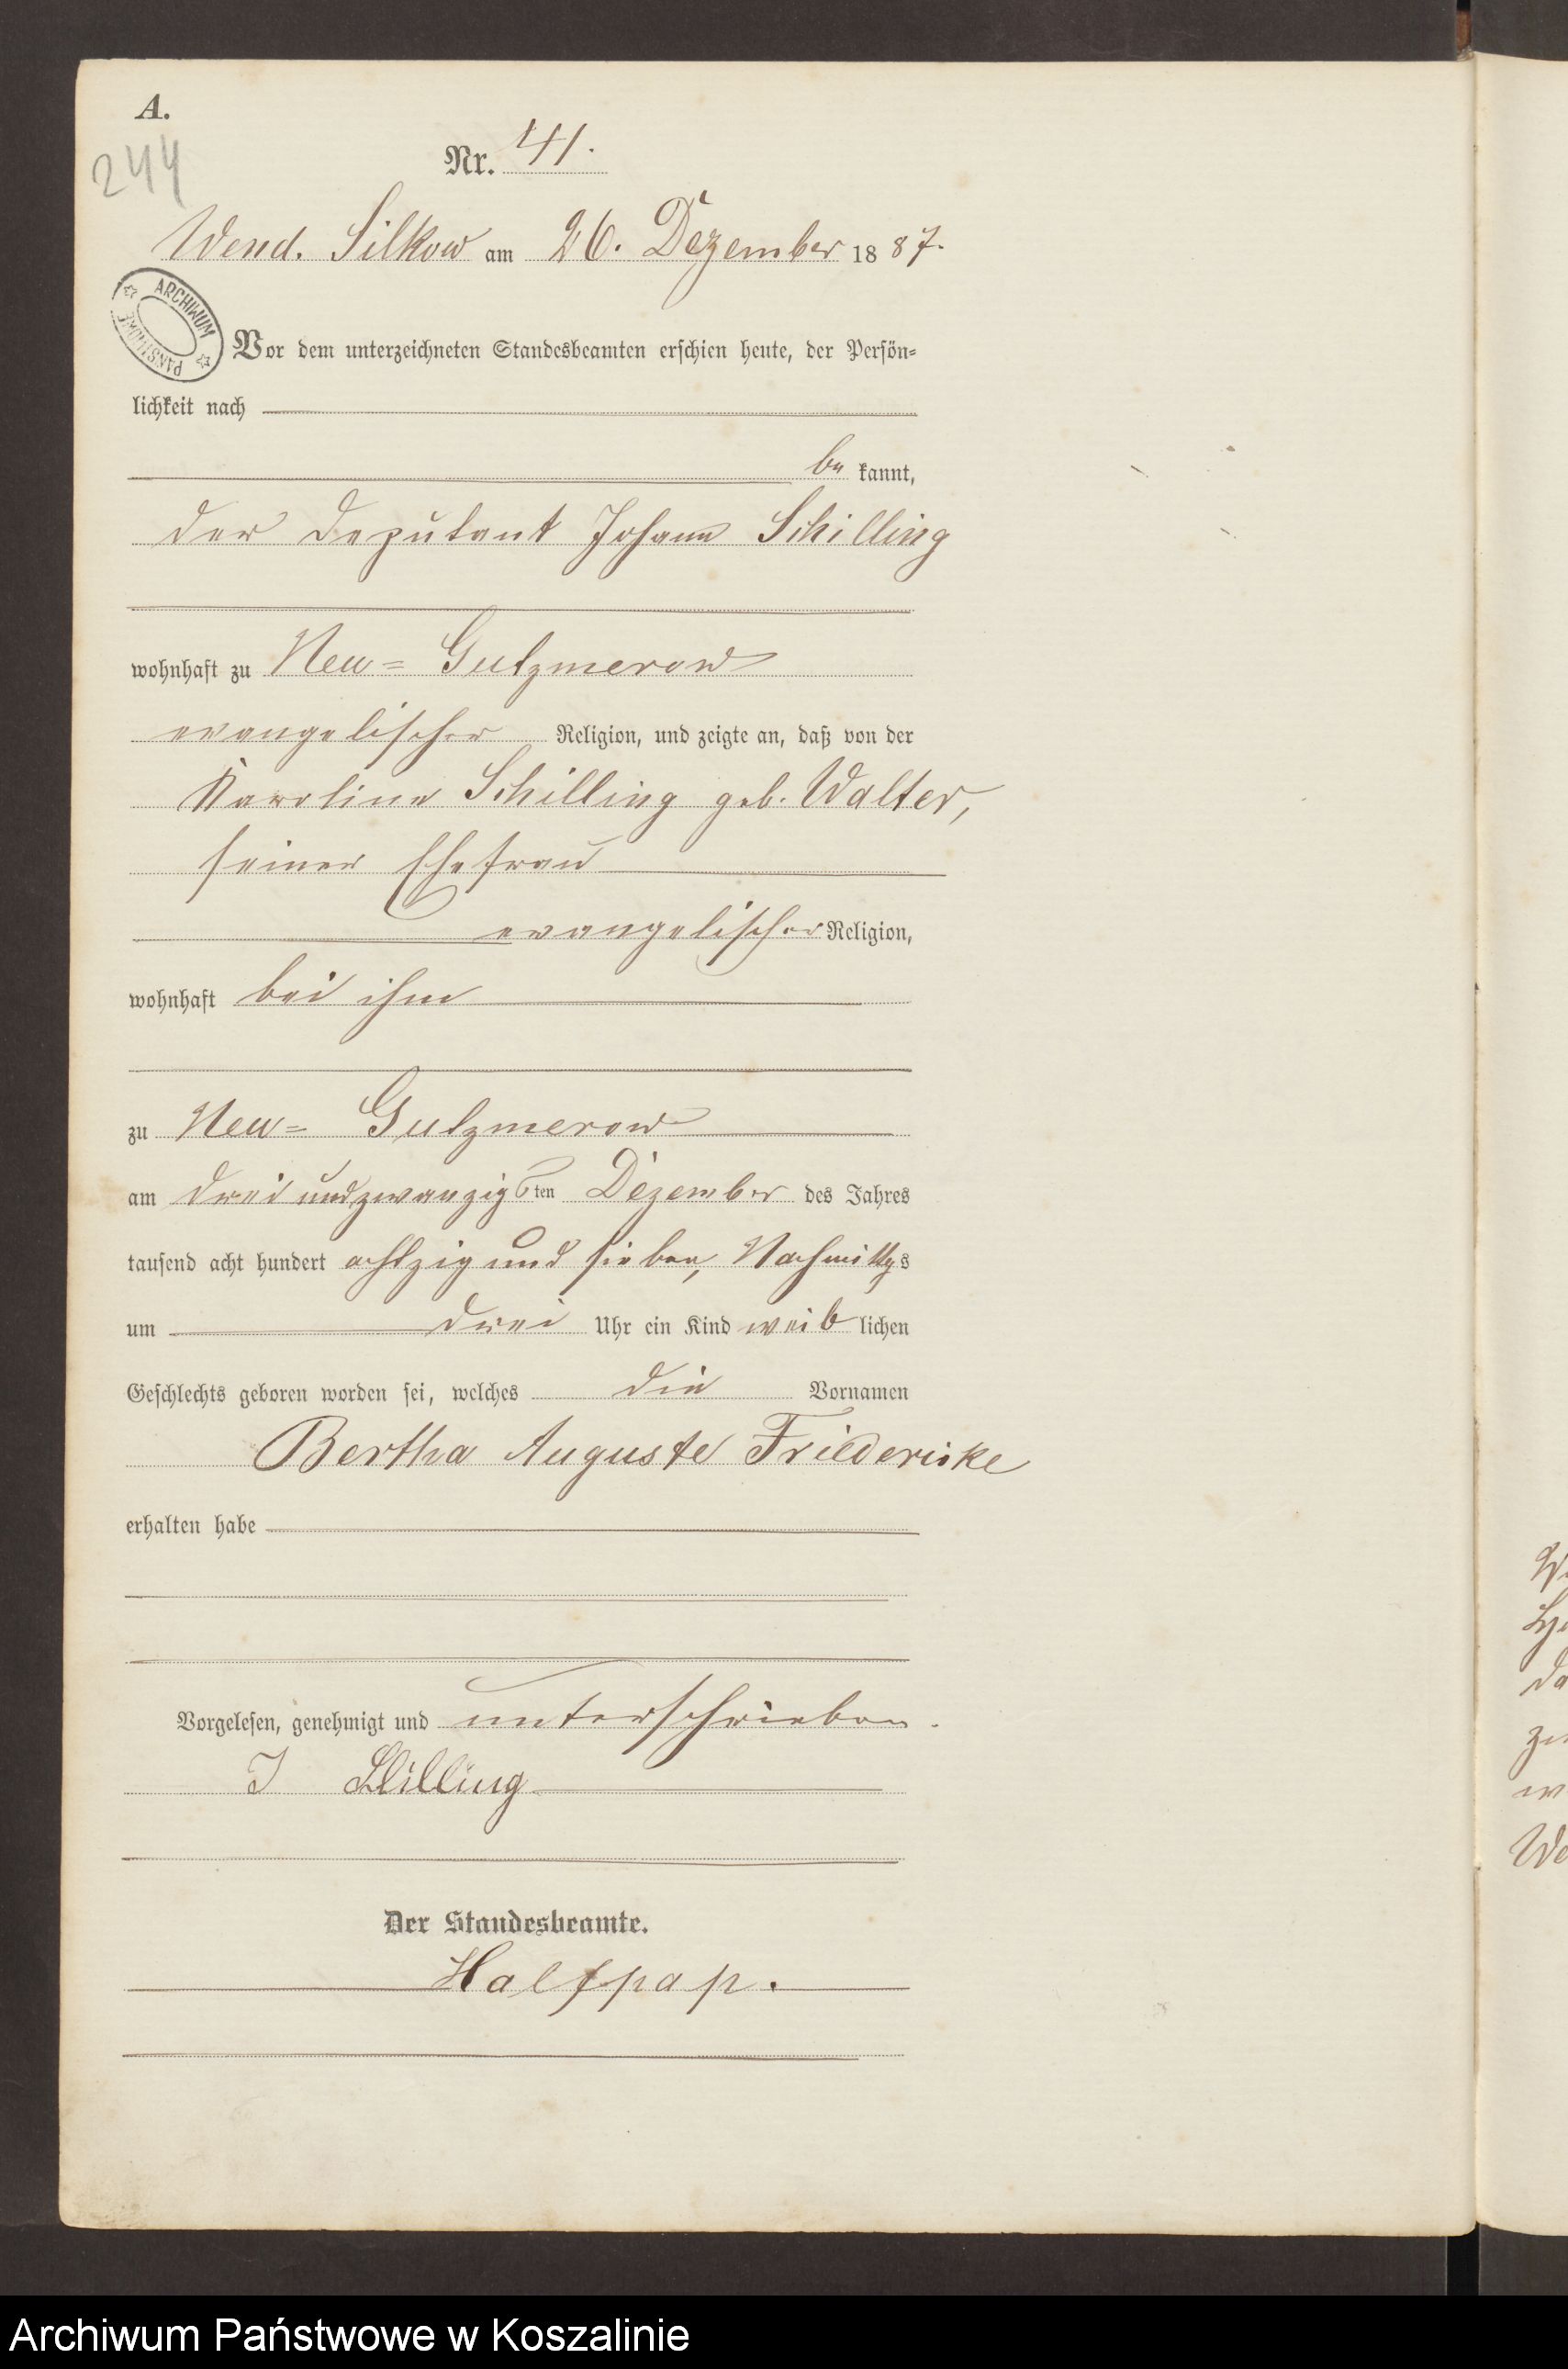 A.
244
Nr. 41.
Wend. Silkow am 26. Dezember 1887.
ARCHIWUM PAŃSTWOWE
Vor dem unterzeichneten Standesbeamten erschien heute, der Persön-
lichkeit nach
be kannt,
der Deputant Johann Schilling
wohnhaft zu Neu= Gutzmerow
evangelischer Religion, und zeigte an, daß von der
Karoline Schilling geb. Walter,
seiner Ehefrau
evangelischer Religion,
wohnhaft bei ihm
zu Neu= Gutzmerow
am drei und zwanzigsten Dezember des Jahres
tausend acht hundert achtzig und sieben, Nachmittgs
um drei Uhr ein Kind weiblichen
Geschlechts geboren worden sei, welches die Vornamen
Bertha Auguste Friedericke
erhalten habe
Vorgelesen, genehmigt und unterschrieben.
J Schilling
Der Standesbeamte.
Halfpap.
Archiwum Państwowe w Koszalinie